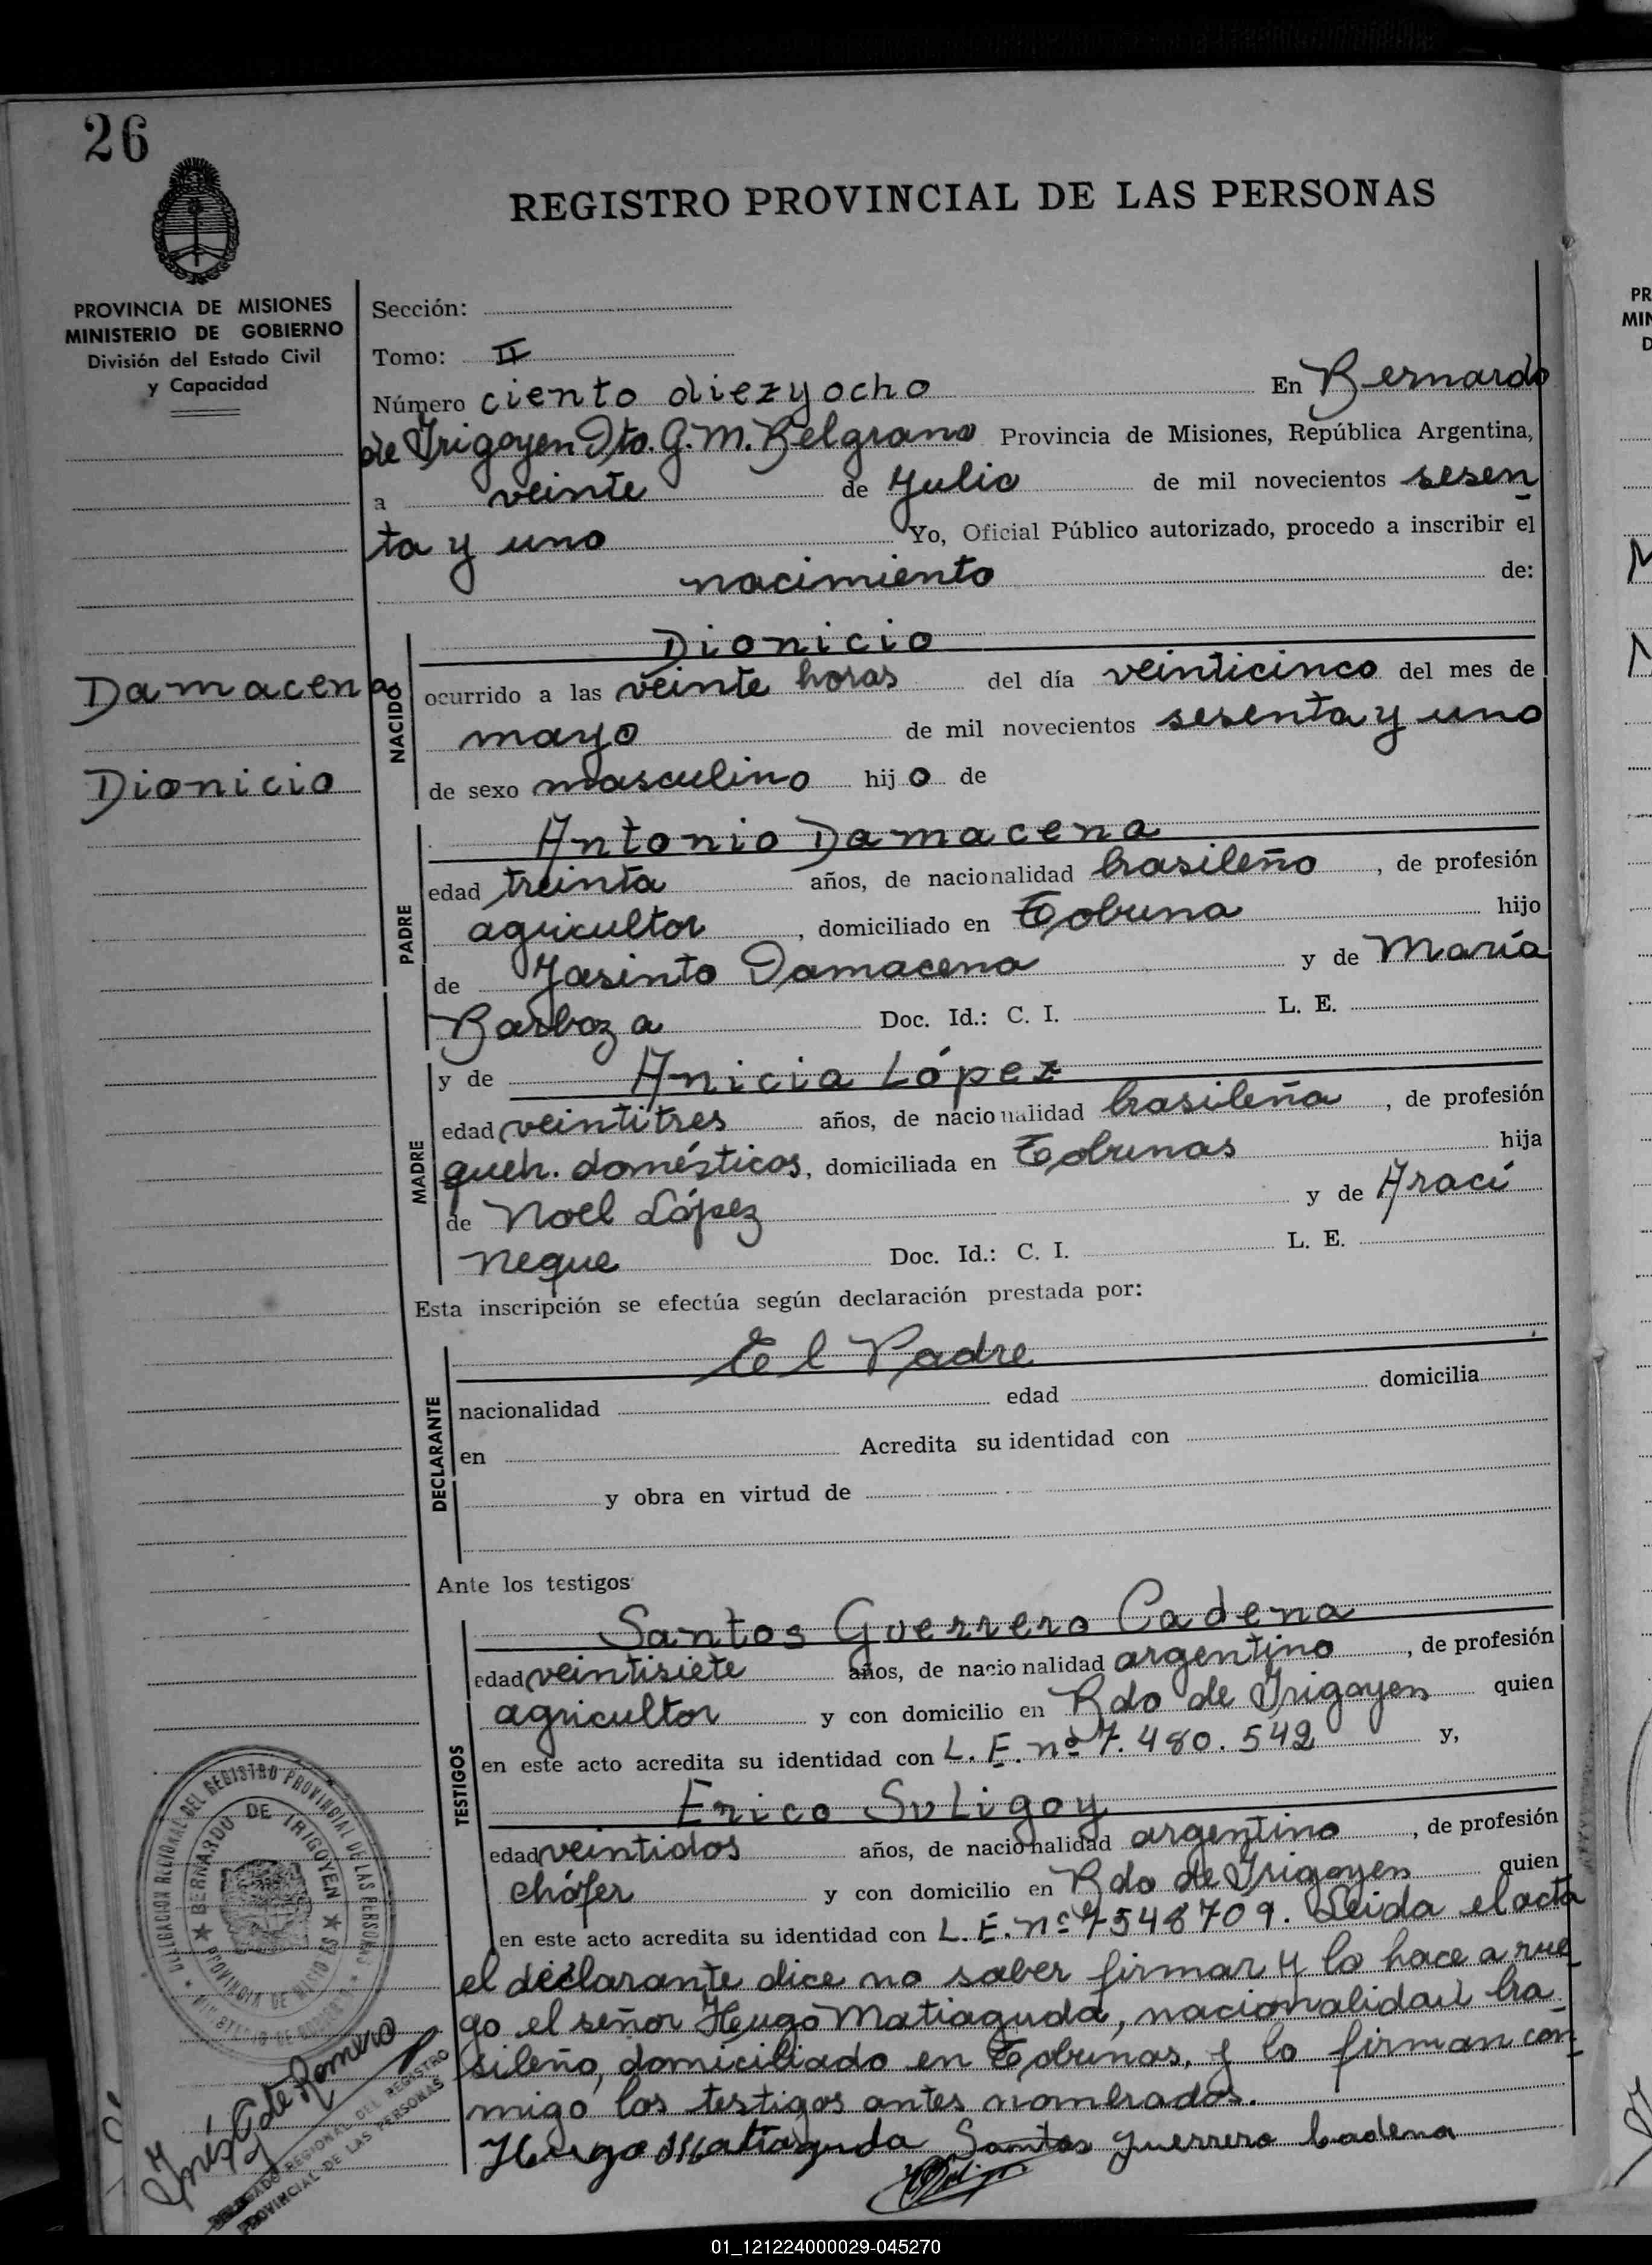 26
REGISTRO PROVINCIAL DE LAS PERSONAS
PROVINCIA DE MISIONES
MINISTERIO DE GOBIERNO
División del Estado Civil
y Capacidad
Sección:
Tomo: II
Número ciento diez y ocho En Bernardo
de Yrigoyen Dto. G. M. Belgrano Provincia de Misiones, República Argentina,
a veinte de Julio de mil novecientos sesen
ta y uno Yo, Oficial Público autorizado, procedo a inscribir el
nacimiento de:
Damacena
Dionicio
NACIDO
Dionicio
ocurrido a las veinte horas del día veinticinco del mes de
mayo de mil novecientos sesenta y uno
de sexo masculino hijo de
PADRE
Antonio Damacena
edad treinta años, de nacionalidad brasileño, de profesión
agricultor, domiciliado en Tobuna hijo
de Jasinto Damacena y de María
Barboza Doc. Id.: C. I. L. E.
MADRE
y de Anicia López
edad veintitres años, de nacionalidad brasileña, de profesión
queh. domésticos, domiciliada en Tobunas hija
de Noel López y de Araci
Neque Doc. Id.: C. I. L. E.
Esta inscripción se efectúa según declaración prestada por:
DECLARANTE
El Padre
nacionalidad edad domicilia
en Acredita su identidad con
y obra en virtud de
Ante los testigos
TESTIGOS
Santos Guerrero Cadena
edad veintisiete años, de nacionalidad argentino, de profesión
agricultor y con domicilio en Bdo de Yrigoyen quien
en este acto acredita su identidad con L. E. nº 7.480.542 y,
Erico Suligoy
edad veintidos años, de nacionalidad argentino, de profesión
chófer y con domicilio en Bdo de Yrigoyen quien
en este acto acredita su identidad con L. E. nº 7548709. Leida el acta
el declarante dice no saber firmar y lo hace a rue
go el señor Hugo Matiaguda, nacionalidad bra
sileño, domiciliado en Tobunas, y lo firman con
migo los testigos antes nombrados.
Hugo Mattiaguda Santos Guerrero Cadena
DELEGACION REGIONAL DEL REGISTRO PROVINCIAL DE LAS PERSONAS
BERNARDO DE IRIGOYEN
PROVINCIA DE MISIONES
MINISTERIO DE GOBIERNO
Inés G de Romero
DELEGADO REGIONAL DEL REGISTRO
PROVINCIAL DE LAS PERSONAS
PR
MIN
D
01_121224000029-045270